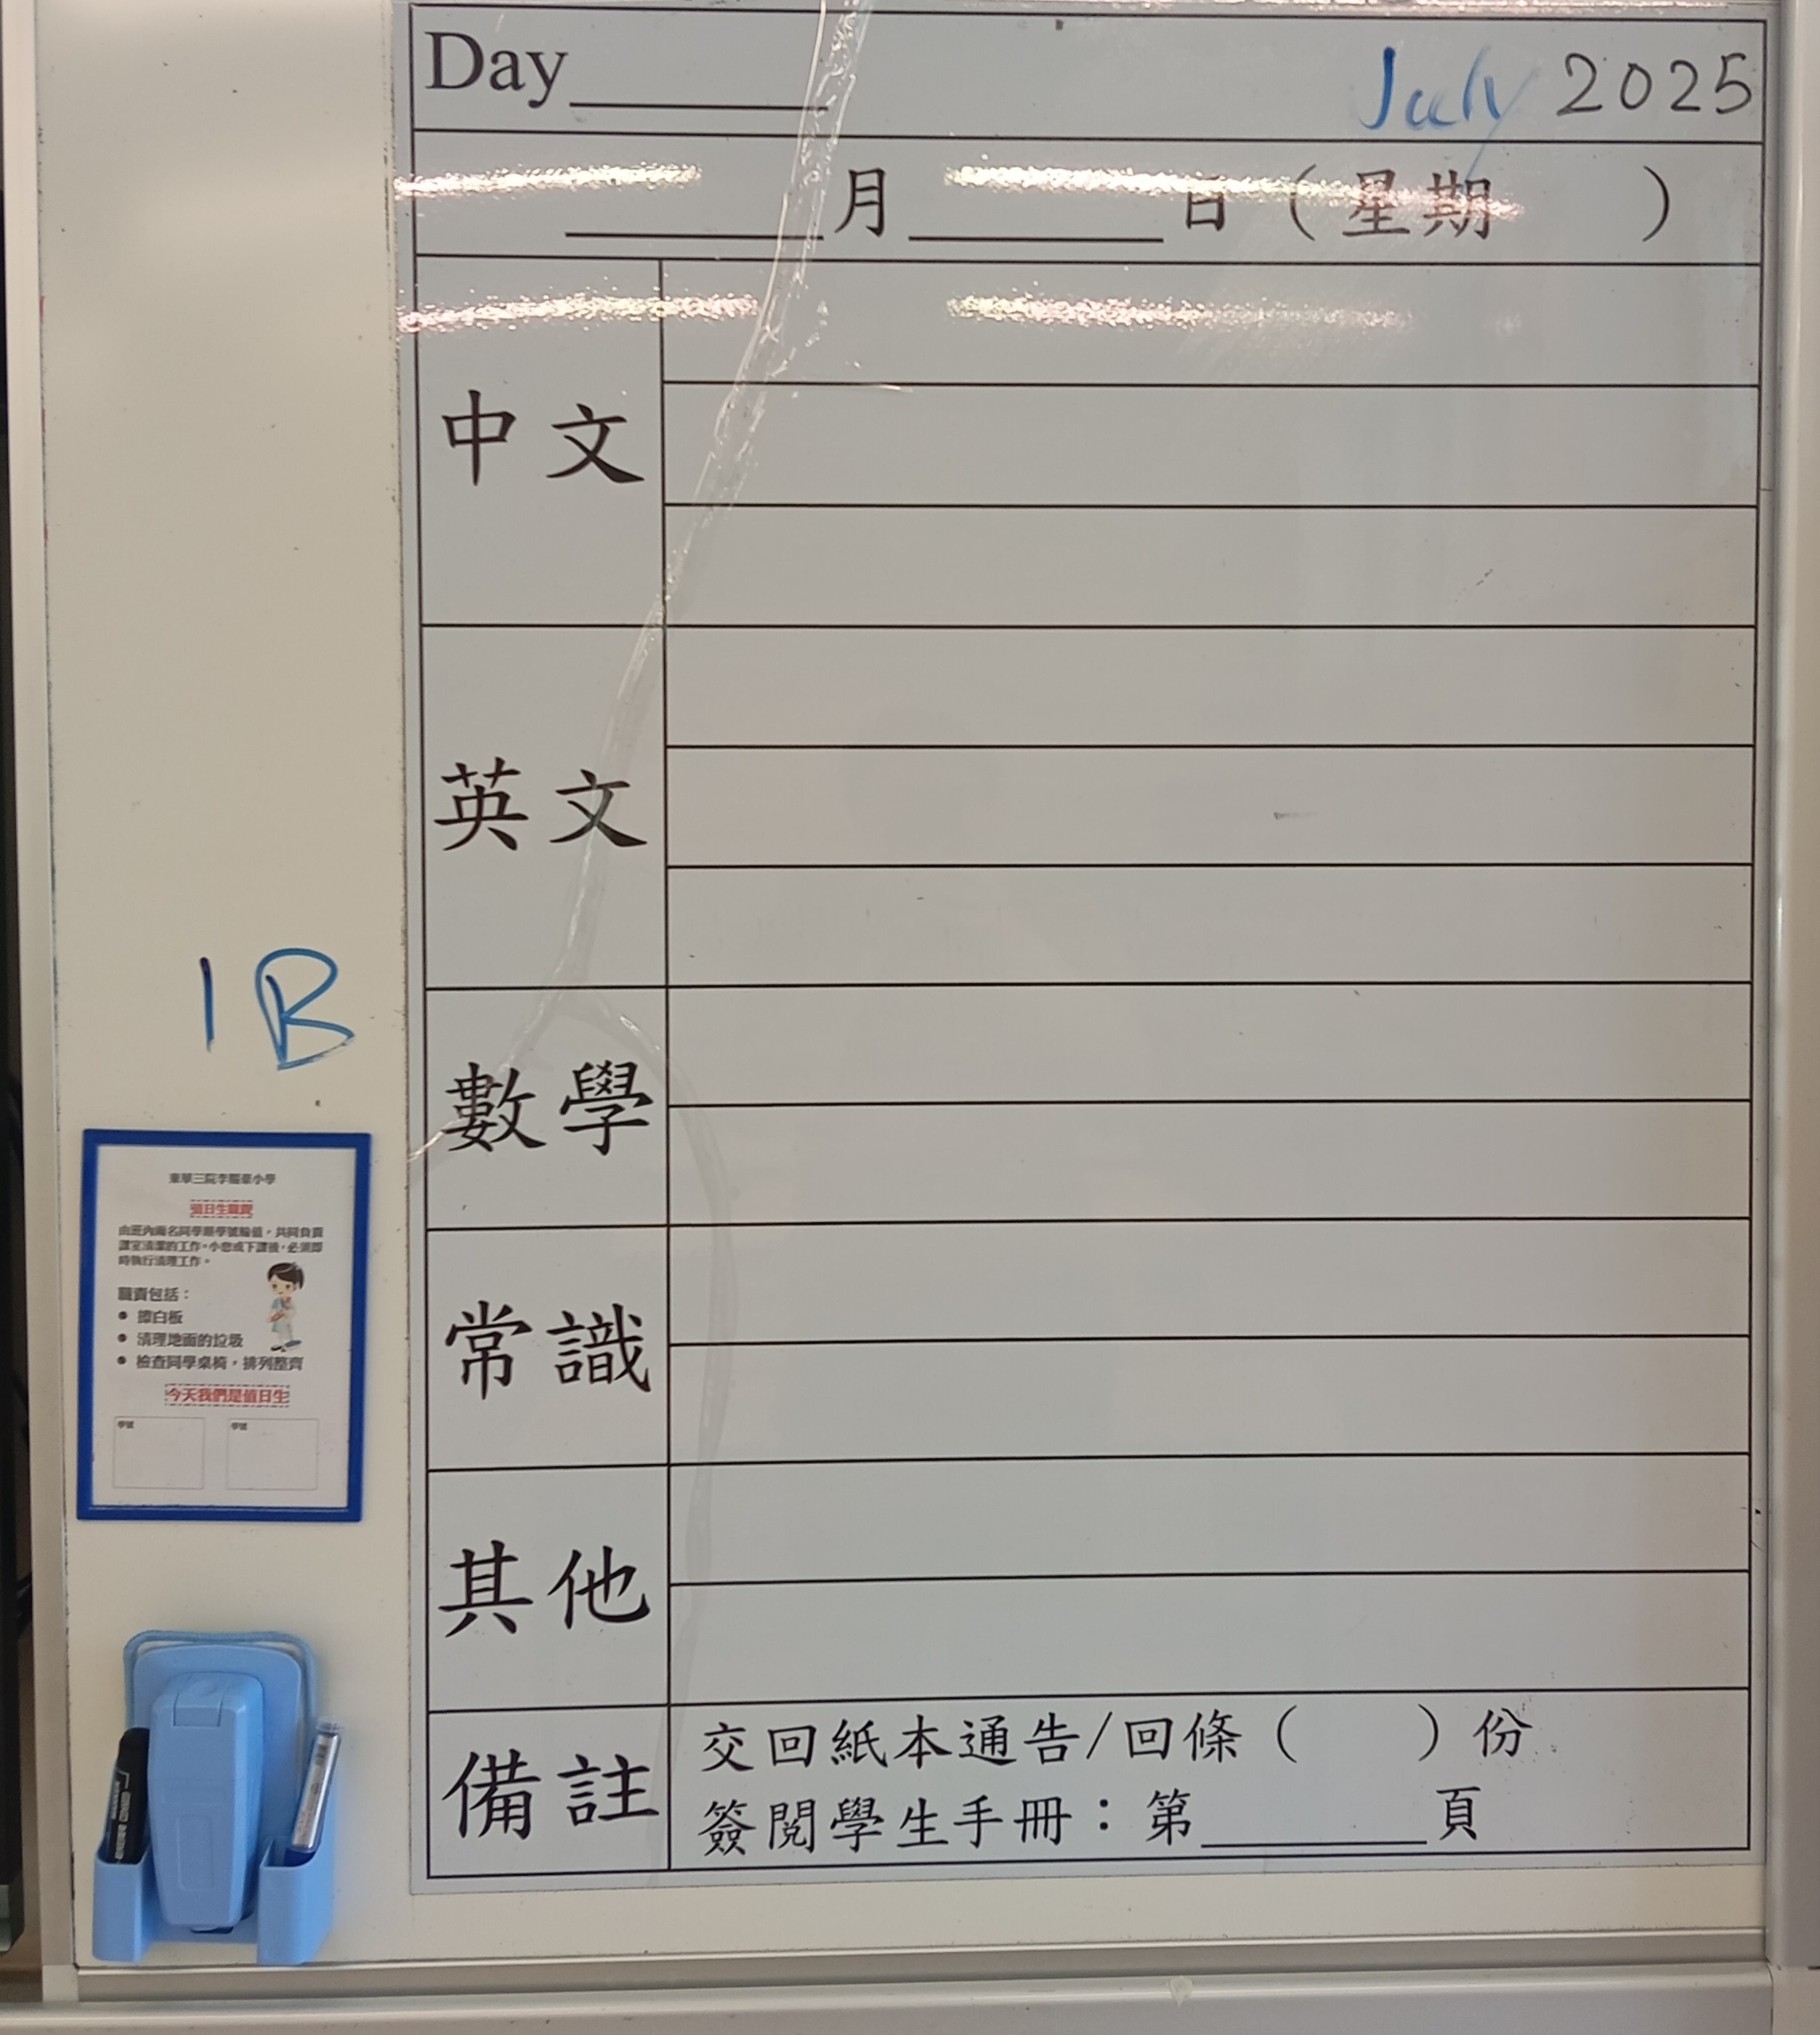 Day______
July 2025
______月______日（星期　　）
中文
英文
數學
常識
其他
備註
交回紙本通告/回條（　　）份
簽閱學生手冊：第______頁
1B
東華三院李賜豪小學
值日生職責
由班內兩名同學順學號輪值，共同負責
課室清潔的工作。小息或下課後，必須即
時執行清理工作。
職責包括：
● 擦白板
● 清理地面的垃圾
● 檢查同學桌椅，排列整齊
今天我們是值日生
學號
學號